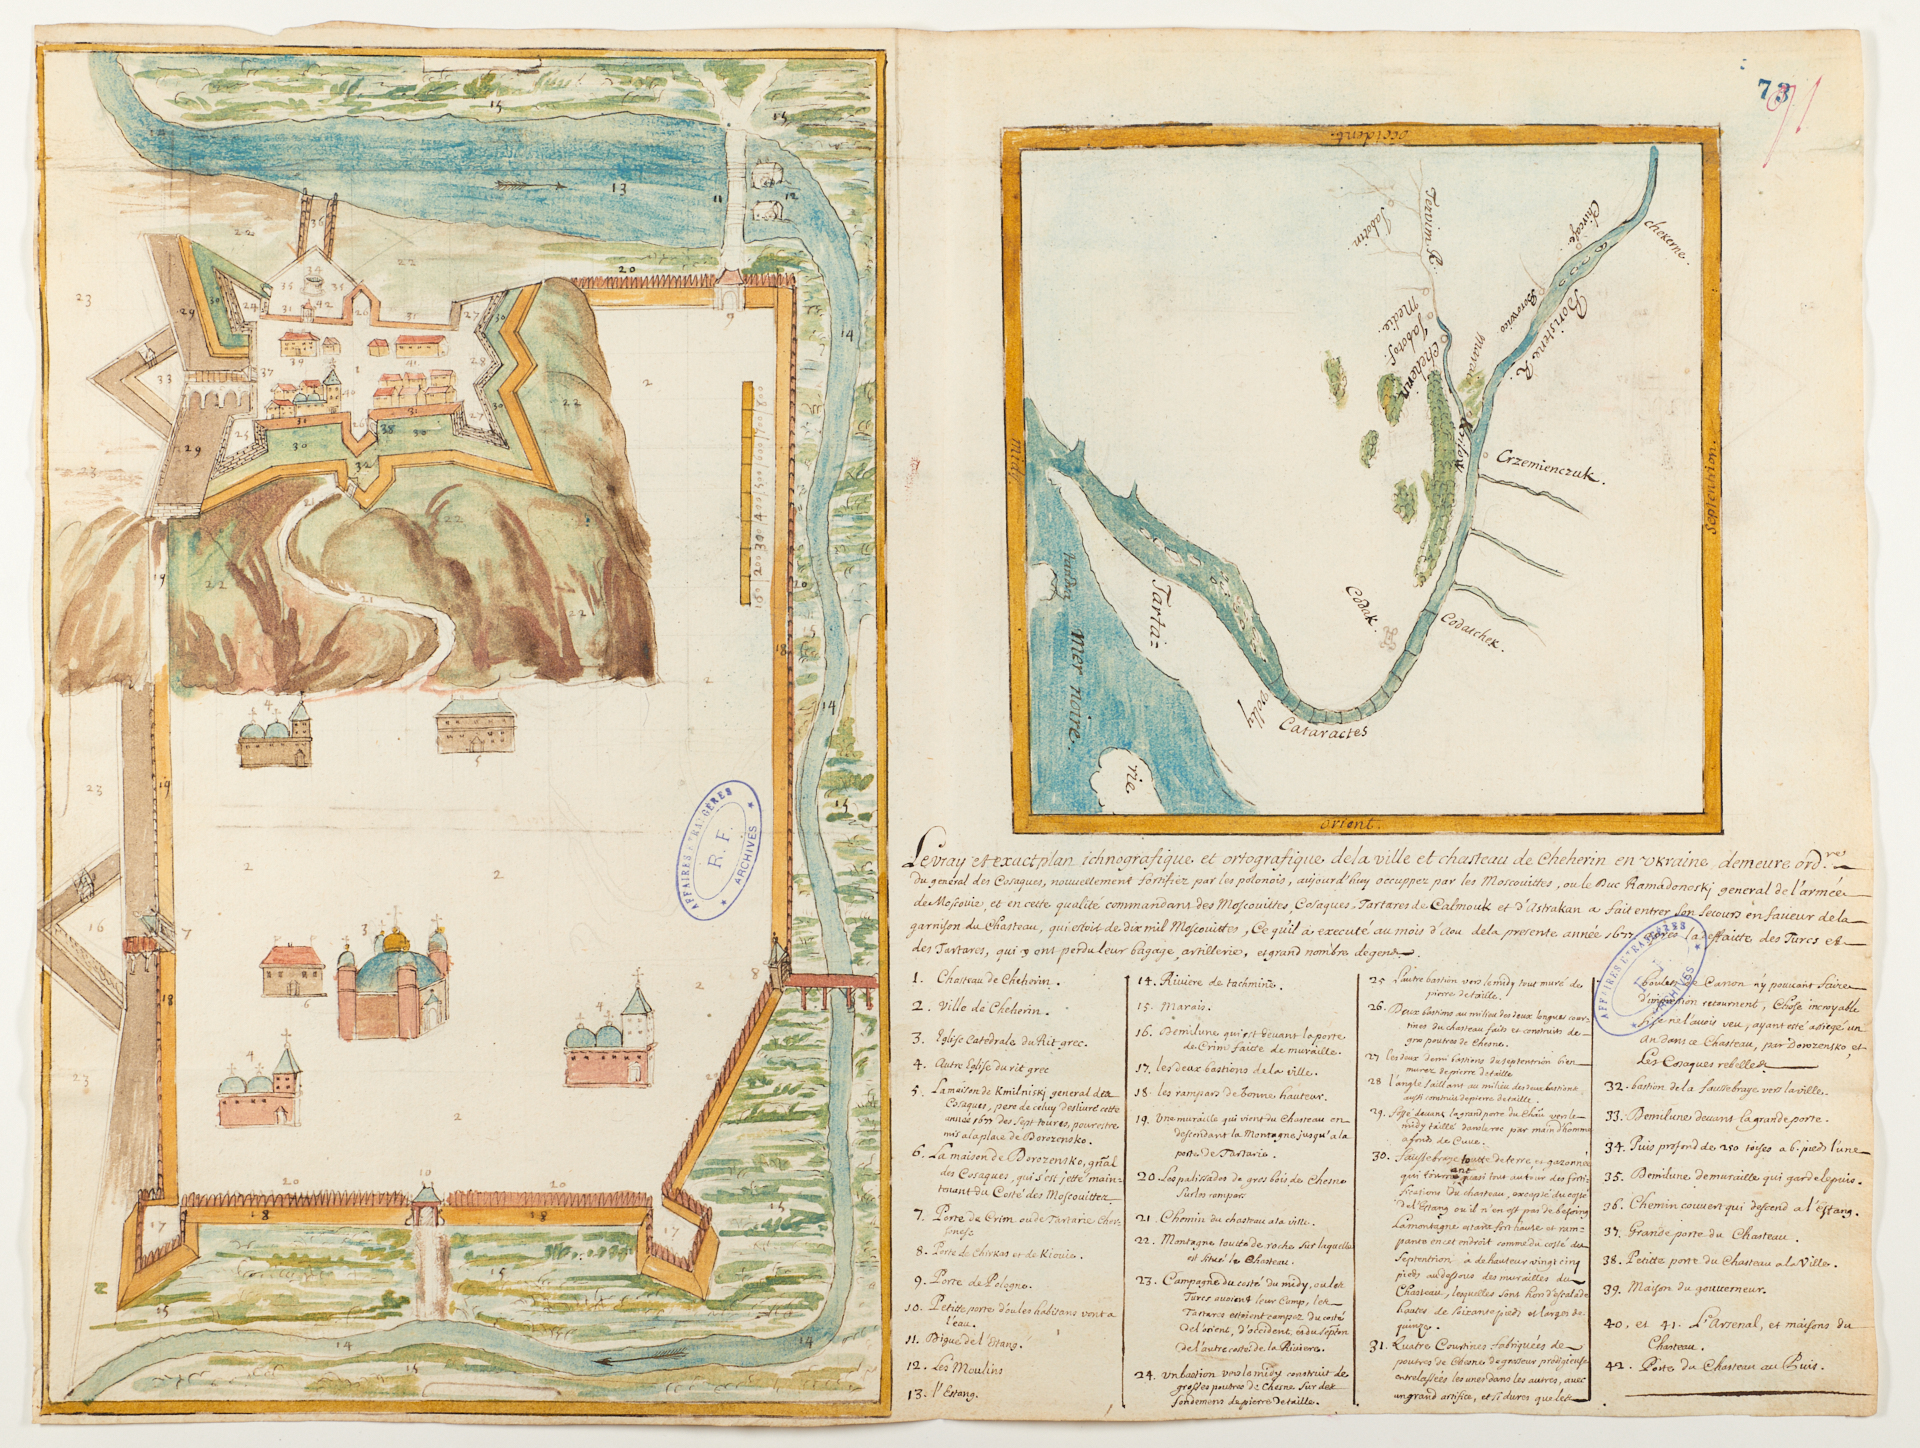 73
91
occident.
midi
Septentrion.
orient.
Chekerne.
Chircasse.
Boristene R.
Borowico
Tervim. R.
Jabotin
Medie.
Jabotof.
Cheherin
marais
Krilow
Crzemienczuk.
Codak
Codatchek.
Cataractes
Tarta=
rie.
mer noire.
Le vray et exact plan ichnografique et ortografique de la ville et chasteau de Cheherin en Vkraine, demeure ord.re
Du general des Cosaques, nouvellement fortifiez par les polonois, aujourd'huy occuppez par les Moscouittes, ou le Duc Ramadonoskj general de l'armée
de Moscovie, et en cette qualité commandant des Moscouittes, Cosaques, Tartares de Calmouk et d'Astrakan a fait entrer son secours en faveur de la
garnison du Chasteau, qui estoit de dix mil Moscouittes, Ce qu'il a executé au mois d'aou de la presente année 1677 la deffaitte des Turcs et
des Tartares, qui y ont perdu leur bagage, artillerie, et grand nombre de gens.
1. Chasteau de Cheherin.
2. Ville de Cheherin.
3. Eglise Catedrale du Rit grec.
4. Autre Eglise du rit grec
5. La maison de Kmilniskj general des
Cosaques, pere de celuy des livré cette
année 1677 des sept toures, pour estre
mis a la place de Dorozensko.
6. La maison de Dorozensko, gñal
des Cosaques, qui s'est jetté main-
tenant du Costé des Moscouittes
7. Porte de Crim ou de Tartarie Cher-
sonese
8. Porte de Chirkas et de Kiovie.
9. Porte de Pologne.
10. Petitte porte d'ou les habitans vont a
l'eau.
11. Digue de l'Estang.
12. Les Moulins
13. l'Estang.
14. Riviere de tachmine.
15. Marais.
16. Demilune qui est devant la porte
de Crim faitte de muraille.
17. les deux bastions de la ville.
18. les rampars de bonne hauteur.
19. Une muraille qui vient du Chasteau en
descendant la Montagne jusqu'a la
porte de Tartarie.
20. Les palissades de gros bois de Chesne
sur les rempars
21. Chemin du chasteau a la ville.
22. Montagne toutte de roche sur laquelle
est situé le Chasteau.
23. Campagne du costé du midy, ou les
Turcs avoient leur Camp, les
Tartares estoient campez du costé
de l'orient, d'occident, et du septen
de l'autre costé de la Riviere.
24. un bastion vers le midy construit de
grosses poutres de Chesne sur des
fondemens de pierre de taille.
25 L'autre bastion vers le midy tout muré de
pierre de taille.
26. Deux bastions au milieu des deux longues cour-
tines du chasteau faits et construits de
gros poutres de Chesne.
27 les deux demi bastions du septentrion bien
murez de pierre de taille
28 l'angle saillant au milieu des deux bastions
aussi construit de pierre de taille.
29. fossé devant la grand porte du Chãu vers le
midy taillé dans le roc par main d'homme
a fonds de Cuve.
30. Faussebraye toutte de terre et gazonnée
qui tournoit quasi tout autour des forti-
fications du chasteau, excepté du costé
de l'Estang ou il n'en est pas de besoing
La montagne estant fort haute et ram-
pante en cet endroit comme du costé du
Septentrion a de hauteur vingt cinq
pieds au dessous des murailles du
Chasteau, lesquelles sont hors d'escalade
hautes de soixante pieds et larges de
quinze.
31. Quatre Courtines fabriquées de
poutres de Chesnes de grosseur prodigieuse
entrelassées les unes dans les autres, avec
un grand artifice, et si dures que les
boulets de Canon n'y pouvant faire
d'impression retournent, Chose incroyable
si je ne l'avois veu, ayant esté assiegé un
An dans ce Chasteau, par Dorozensko, et
Les Cosaques rebelles
32. bastion de la faussebraye vers la ville.
33. Demilunes devant la grande porte.
34. Puis profond de 250 toises a 6. pieds l'une
35. Demilune de muraille qui garde le puis.
36. Chemin couvert qui descend a l'Estang.
37. Grande porte du Chasteau.
38. Petitte porte du Chasteau a la Ville.
39. Maison du gouverneur.
40, et 41. L'Arsenal, et maisons du
Chasteau.
42. Porte du Chasteau au Puis.
AFFAIRES ETRANGÈRES
R.F.
ARCHIVES
AFFAIRES ETRANGÈRES
ARCHIVES
100 200 300 400 500 600 700 800